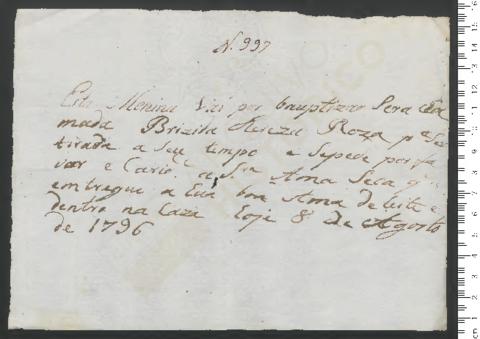 N. 997
Esta Menina Vai por bauptizar Sera cha
mada Brizida Tereza Roza pa Se
tirada a Seu tempo e Sepede por fa
vor e Carid.e a Sra Ama Seca q
entregue a Eua boa Ama de leite e
dentro na Caza Hoje 8 de Agosto
de 1796